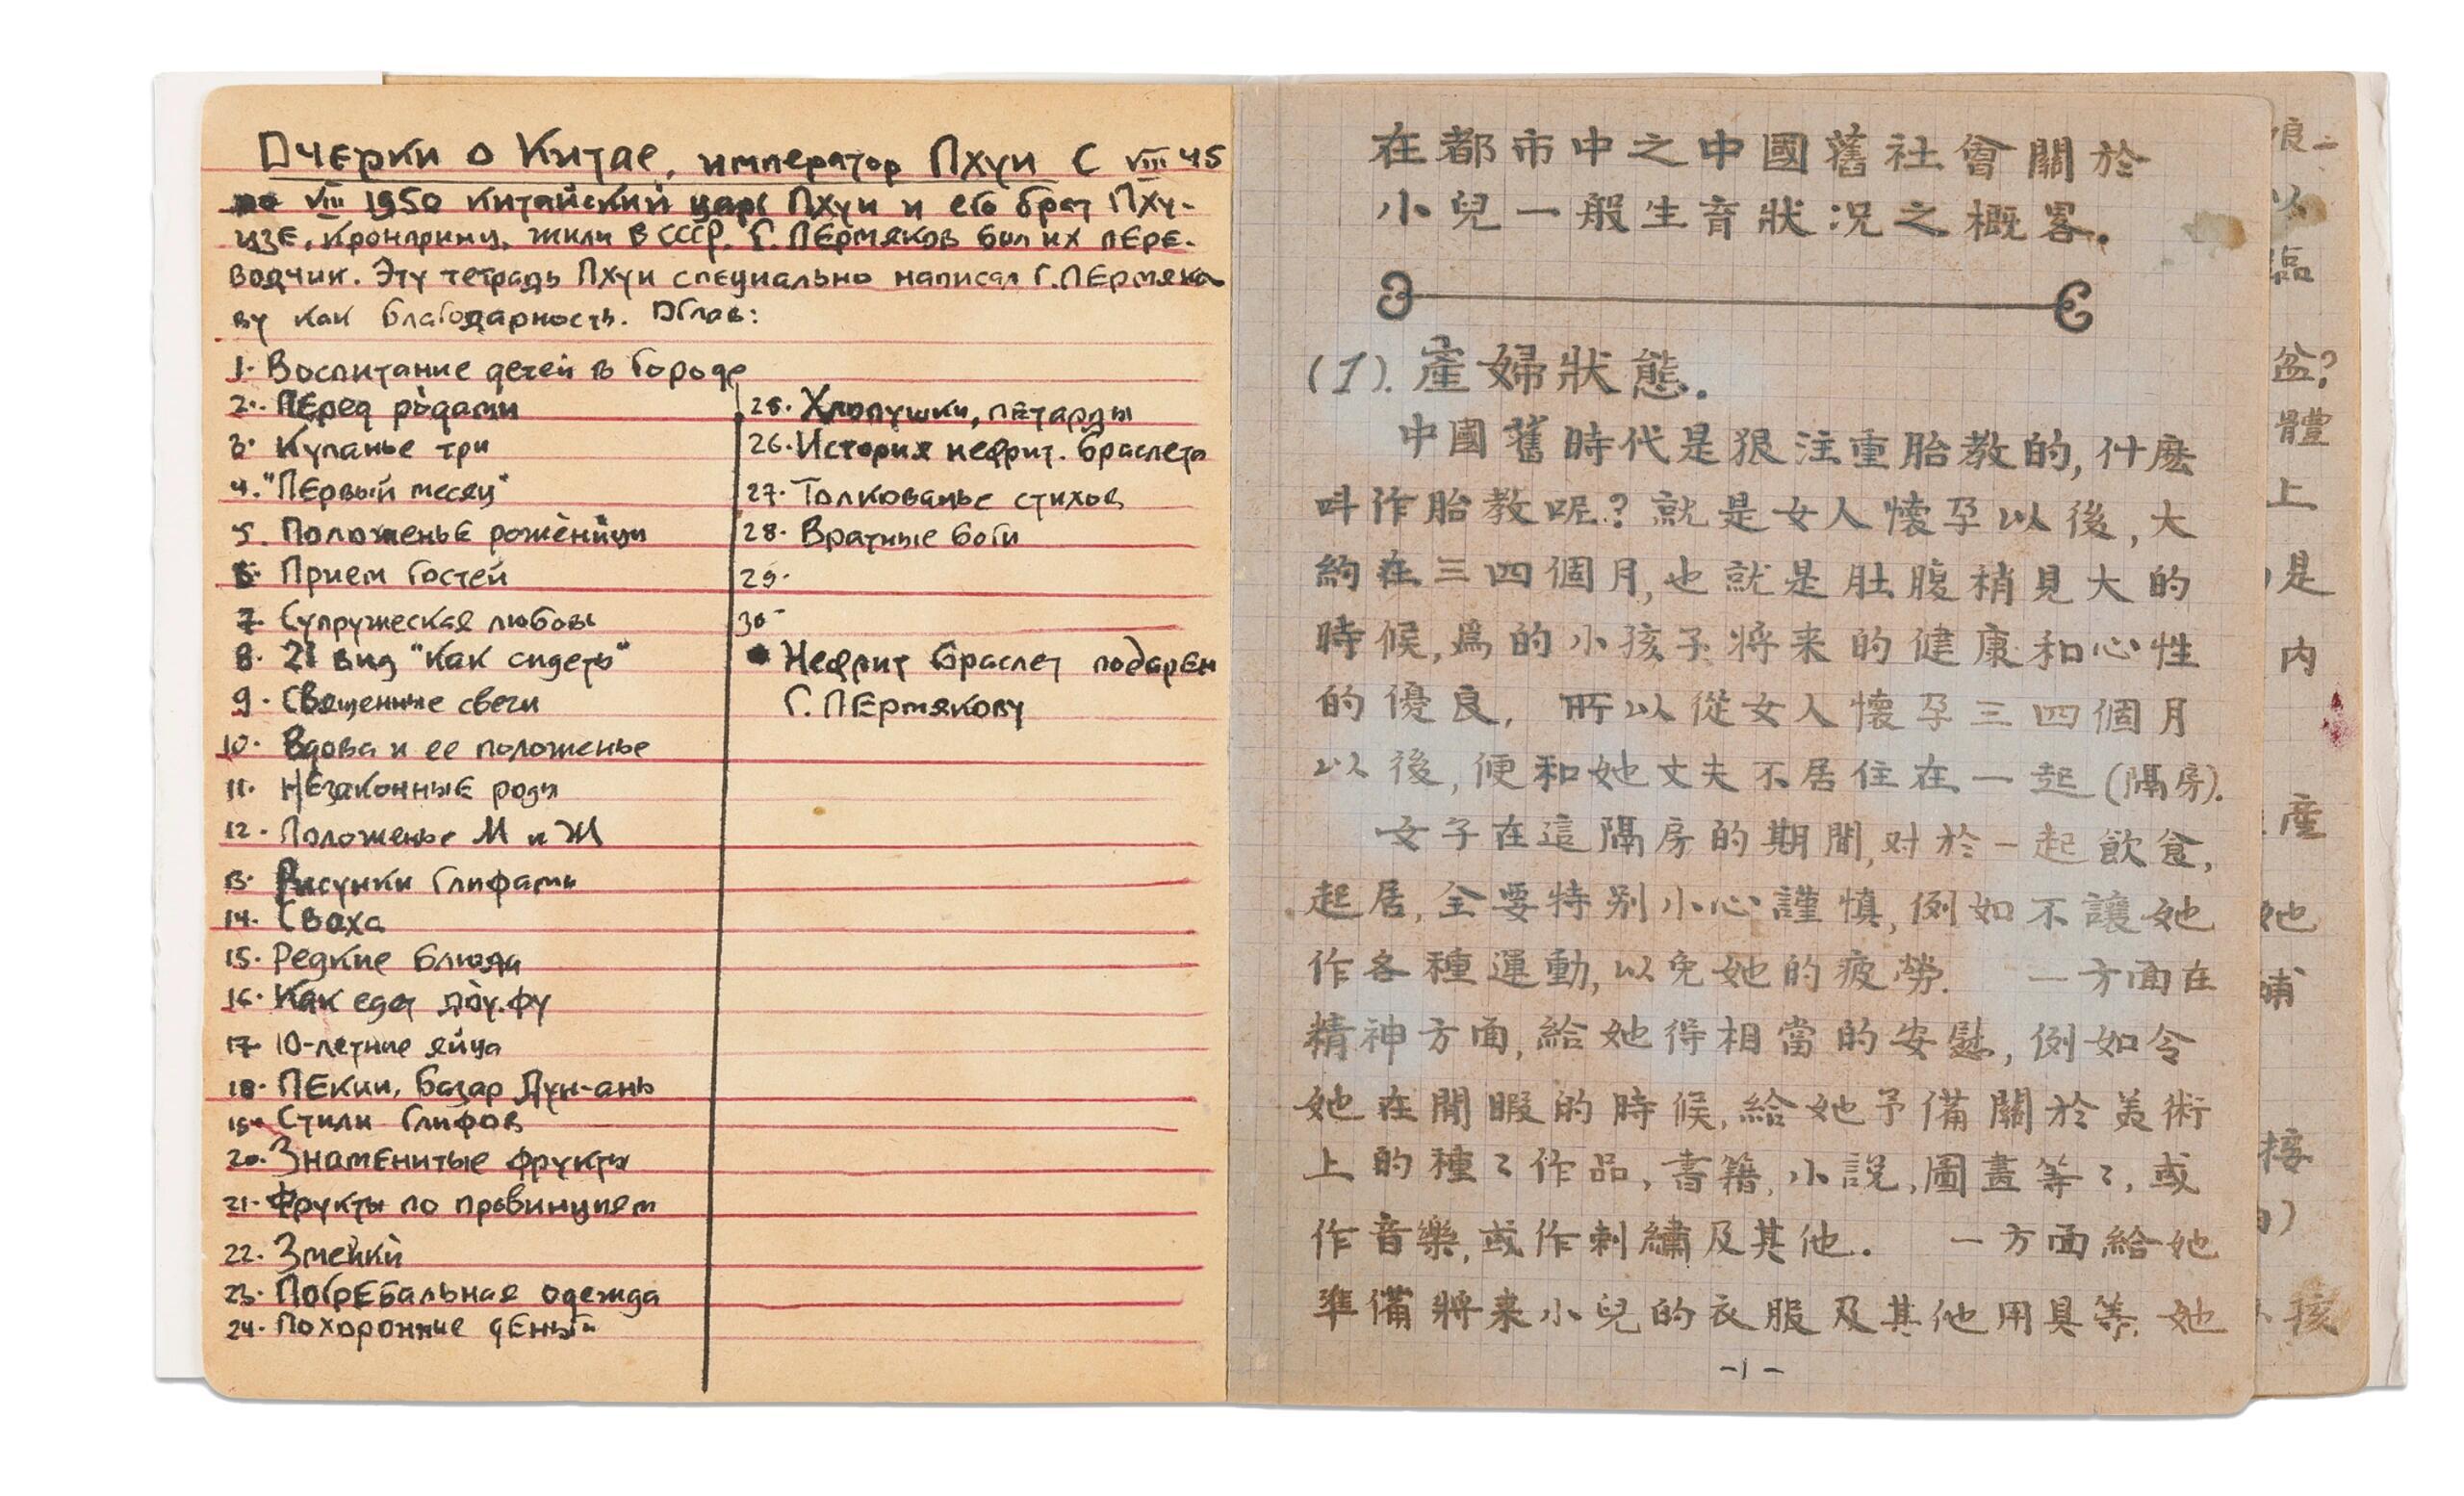 Очерки о Китае, император Пхуи С VIII 45
по VIII 1950 китайский царь Пхуи и его брат Пху-
изе, кронпринц, жили в СССР. Г. Пермяков был их пере-
водчик. Эту тетрадь Пхуи специально написал Г. Пермяко
ву как благодарность. Оглав:
1. Воспитание детей в городе
2. Перед родами
3. Купанье три
4. "Первый месяц"
5. Положенье роженицы
6. Прием гостей
7. Супружеская любовь
8. 21 вид "как сидеть"
9. Священные свечи
10. Вдова и ее положенье
11. Незаконные роды
12. Положенье М и Ж
13. Рисунки глифами
14. Сваха
15. Редкие блюда
16. Как едят доу-фу
17. 10-летние яйца
18. Пекин, базар Дун-ань
19. Стили глифов
20. Знаменитые фрукты
21. Фрукты по провинциям
22. Змейки
23. Погребальная одежда
24. Похоронные деньги
25. Хлопушки, петарды
26. История нефрит. браслета
27. Толкованье стихов
28. Вратные боги
29.
30
Нефрит браслет подарен
Г. Пермякову
在都市中之中國舊社會關於
小兒一般生育狀况之概畧.
(1). 產婦狀態.
中國舊時代是狠注重胎教的, 什麽
呌作胎教呢? 就是女人懐孕以後, 大
約在三四個月, 也就是肚腹稍見大的
時候, 爲的小孩子將来的健康和心性
的優良, 所以從女人懐孕三四個月
以後, 便和她丈夫不居住在一起 (隔房).
女子在這隔房的期間, 对於一起飲食,
起居, 全要特别小心謹慎, 例如不讓她
作各種運動, 以免她的疲勞. 一方面在
精神方面, 給她得相當的安慰, 例如令
她在閒暇的時候, 給她予備關於美術
上的種〻作品, 書籍, 小説, 圖畫等〻, 或
作音樂, 或作刺繡及其他. 一方面給她
準備將来小兒的衣服及其他用具等. 她
-1-
以
臨
盆?
體
上
是
内
産
她
哺
接
孩